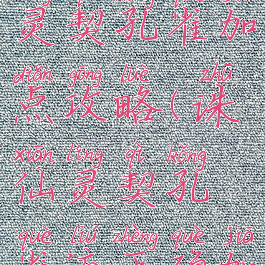 灵契孔雀加
diǎn gōng lüè zhū
点攻略(诛
xiān líng qì kǒng
仙灵契孔
què liú zhèng què jiā